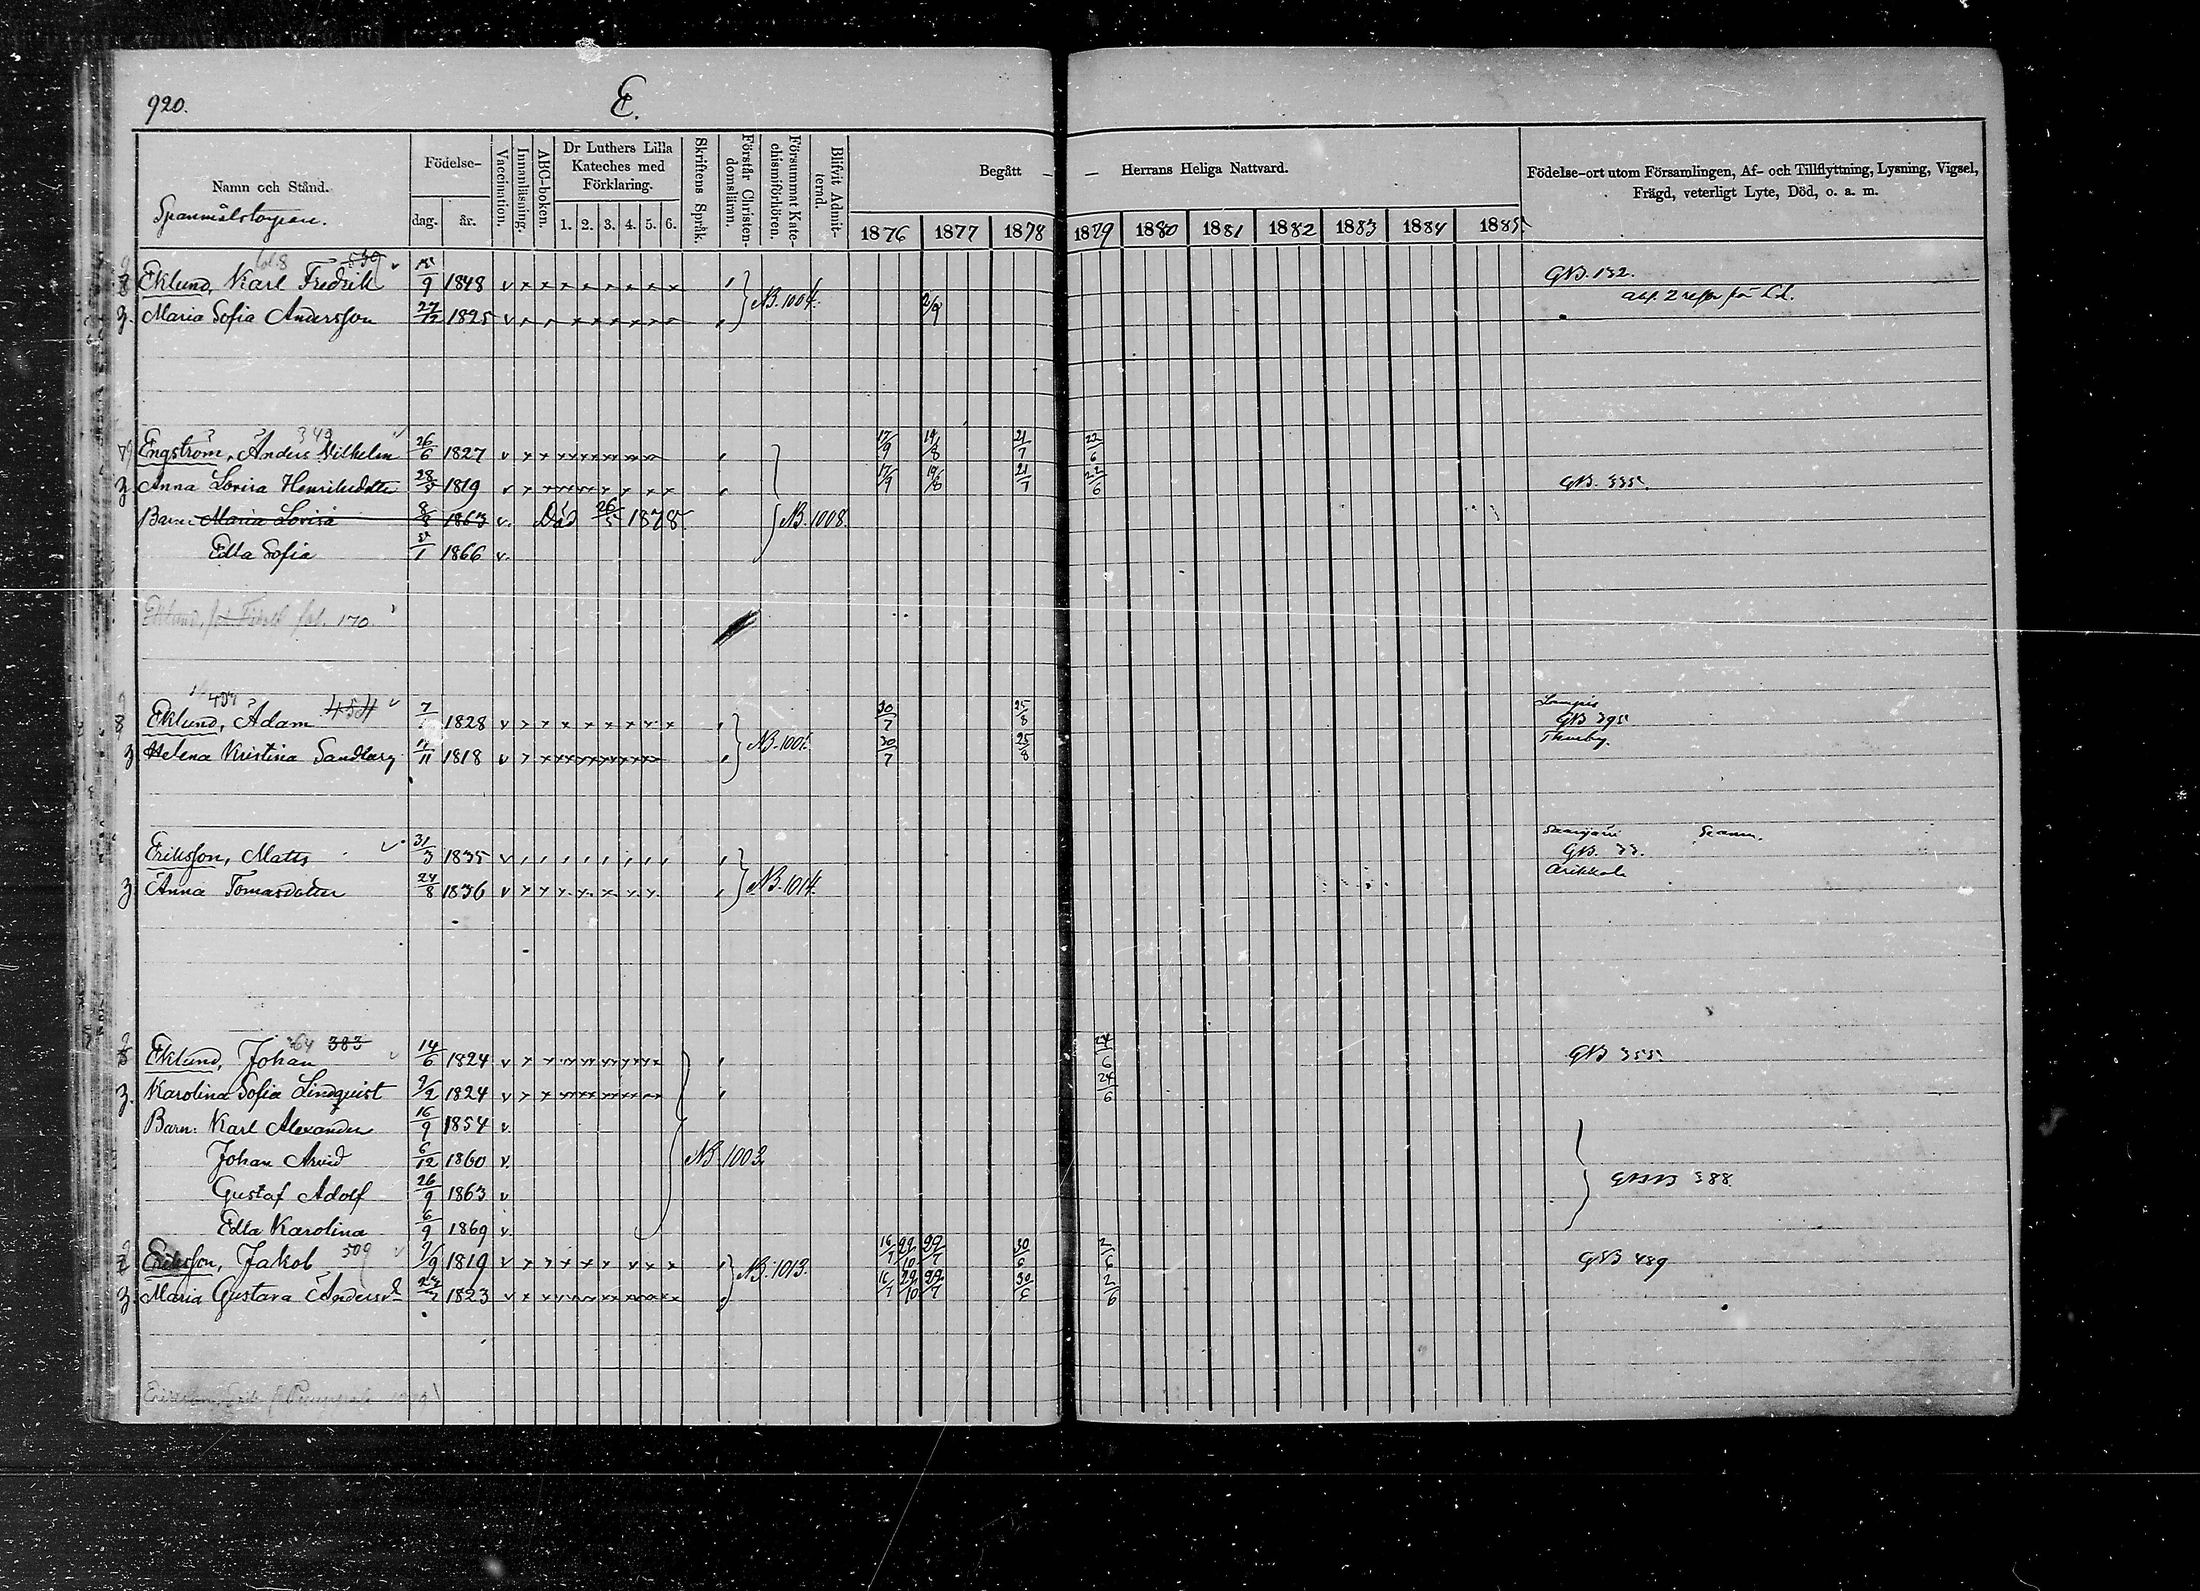 920.
E.
Namn och Stånd.
Födelse-
dag.
år.
Vaccination.
Innanläsning.
ABC-boken.
Dr Luthers Lilla Kateches med Förklaring.
1. 2. 3. 4. 5. 6.
Skriftens Språk.
Förstår Christendomsläran.
Försummat Katechismiförhören.
Blifvit Admitterad.
Begått
Herrans Heliga Nattvard.
1876 1877 1878 1879 1880 1881 1882 1883 1884 1885
Födelse-ort utom Församlingen, Af- och Tillflyttning, Lysning, Vigsel,
Frägd, veterligt Lyte, Död, o. a. m.
Eklund, Karl Fredrik 9 1848 GB. 132.
Maria Sofia Andersson 27/12 1825 NB. 1004. 2/9
Engström, Anders Vilhelm 26/6 1827 17/9 19/8 21/7 22/6
Anna Lovisa Henriksdotter 28 1819 17/9 19/8 21/7 22/6 GB. 335.
Barn: Maria Lovisa 8/8 1863 Död 26/5 1878. NB. 1008.
Edla Sofia 1866
Eklund, fol. 170
Eklund, Adam 484 7 1828 30/7 25/8 GB 395
Helena Kristina Sandberg 11 1818 NB. 1005. 30/7 25/8
Eriksson, Matts 31/3 1835 GB. 33.
Anna Tomasdotter 24/8 1836 NB. 1014.
Eklund, Johan 383 14/6 1824 24/6 GB 355.
Karolina Sofia Lindquist 9/2 1824 24/6
Barn: Karl Alexander 16/9 1854
Johan Arvid 6/12 1860 NB. 1003.
Gustaf Adolf 26/9 1863 388.
Edla Karolina 6/9 1869
Eriksson, Jakob 509 9/9 1819 16/7 22/10 22/7 30/6 2/6 GB 489
Maria Gustava Andersd 1823 NB. 1013. 16/7 22/10 22/7 30/6 2/6